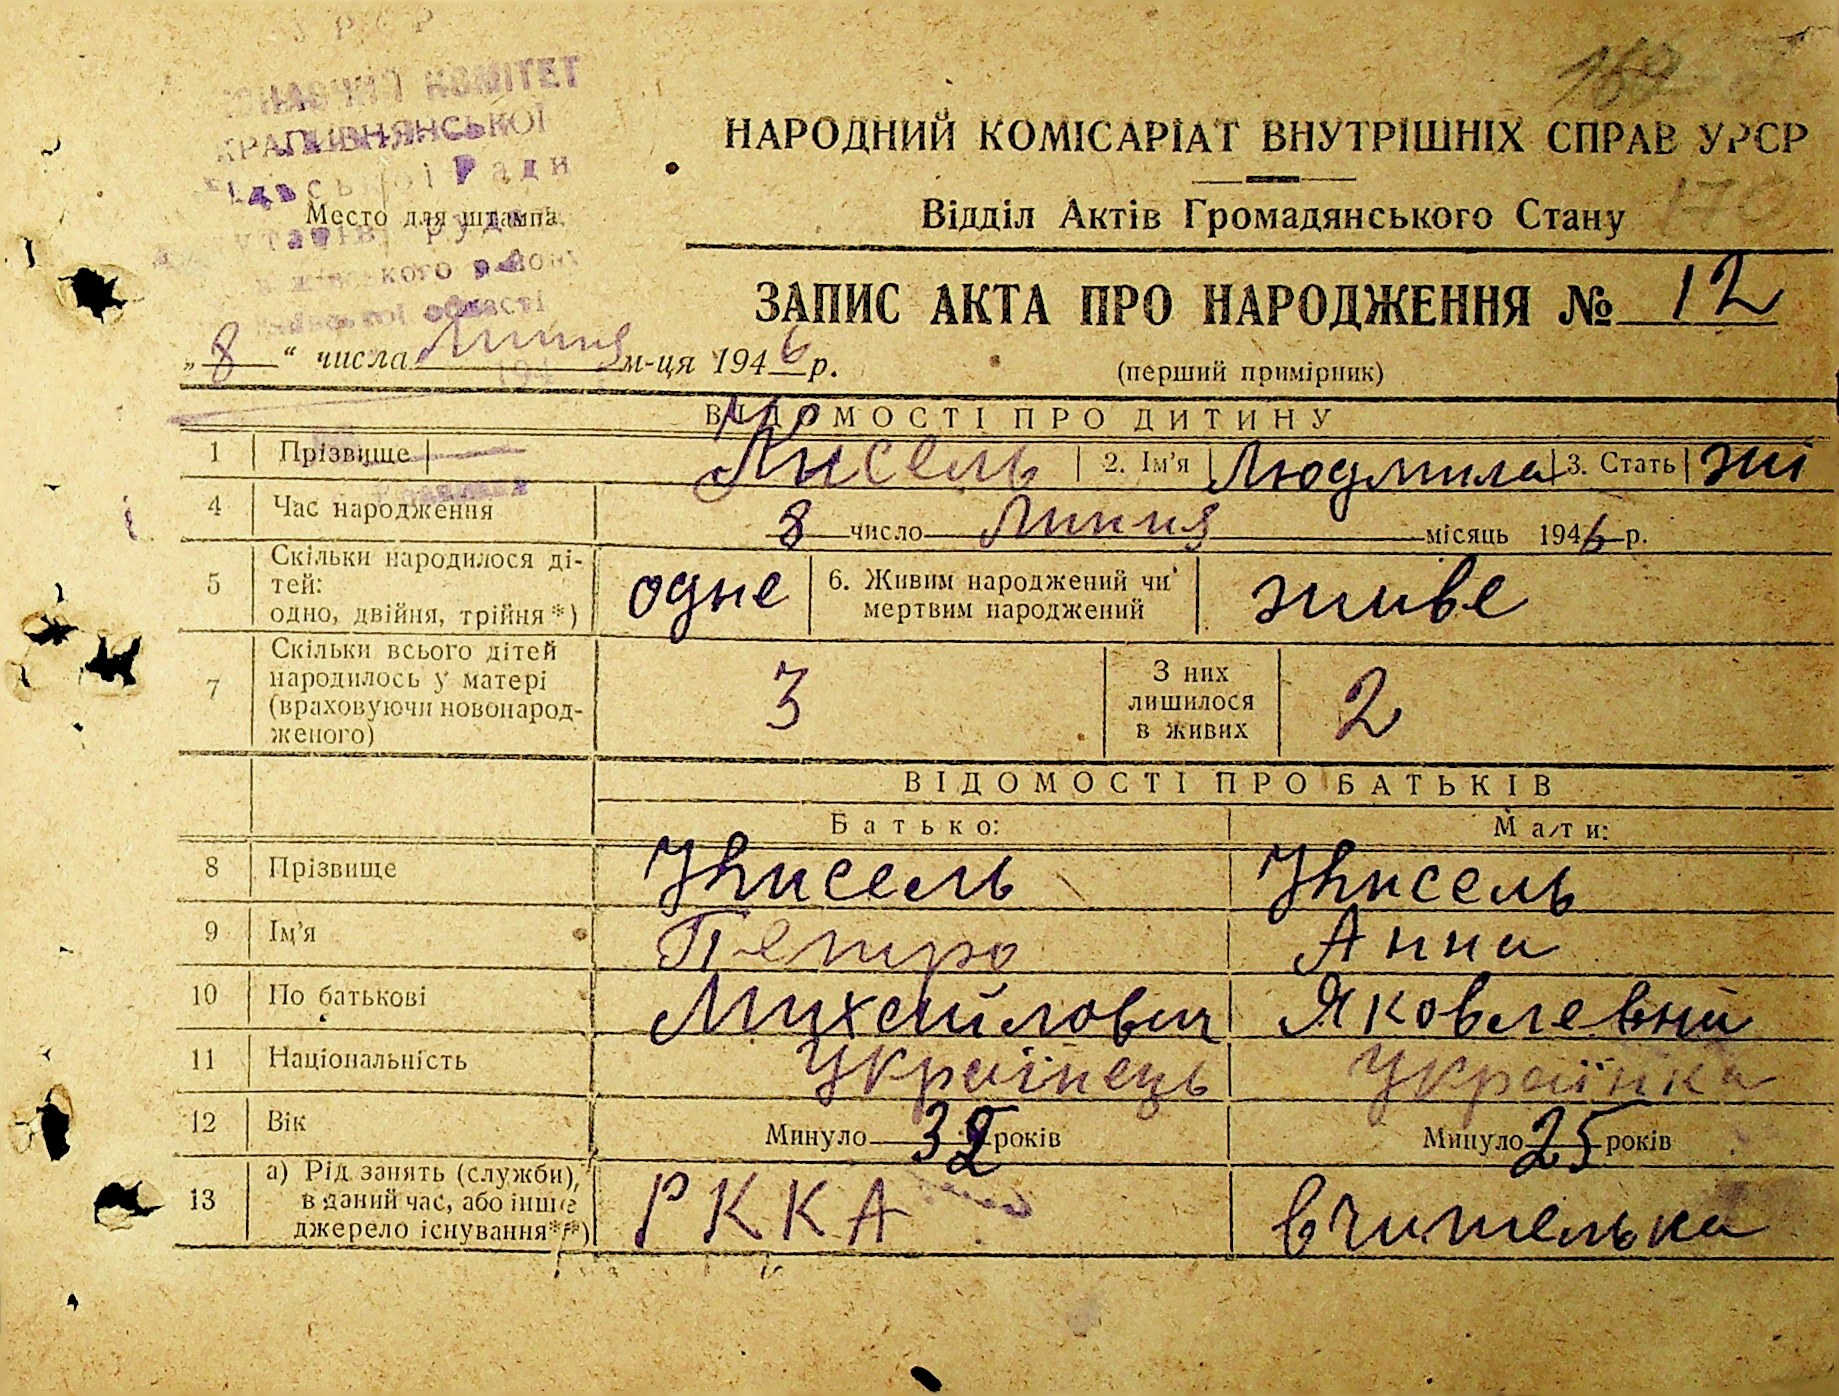 УРСР
КОМІТЕТ
КРАПИВНЯНСЬКОЇ
Ради
Место для штампа
області
169
170
НАРОДНИЙ КОМІСАРІАТ ВНУТРІШНІХ СПРАВ УРСР
Відділ Актів Громадянського Стану
ЗАПИС АКТА ПРО НАРОДЖЕННЯ № 12
„8“ числа Липня м-ця 1946 р.
(перший примірник)
ВІДОМОСТІ ПРО ДИТИНУ
1 Прізвище Кисель 2. Ім'я Людмила 3. Стать жі
4 Час народження 8 число Липня місяць 1946 р.
5 Скільки народилося ді-
тей:
одно, двійня, трійня*) одне 6. Живим народжений чи
мертвим народжений живе
7 Скільки всього дітей
народилось у матері
(враховуючи новонарод-
женого) 3 З них
лишилося
в живих 2
ВІДОМОСТІ ПРО БАТЬКІВ
Батько: Мати:
8 Прізвище Кисель Кисель
9 Ім'я Петро Анна
10 По батькові Михайлович Яковлевна
11 Національність Українець Українка
12 Вік Минуло 32 років Минуло 25 років
13 а) Рід занять (служби),
в даний час, або інше
джерело існування**) РККА вчителька